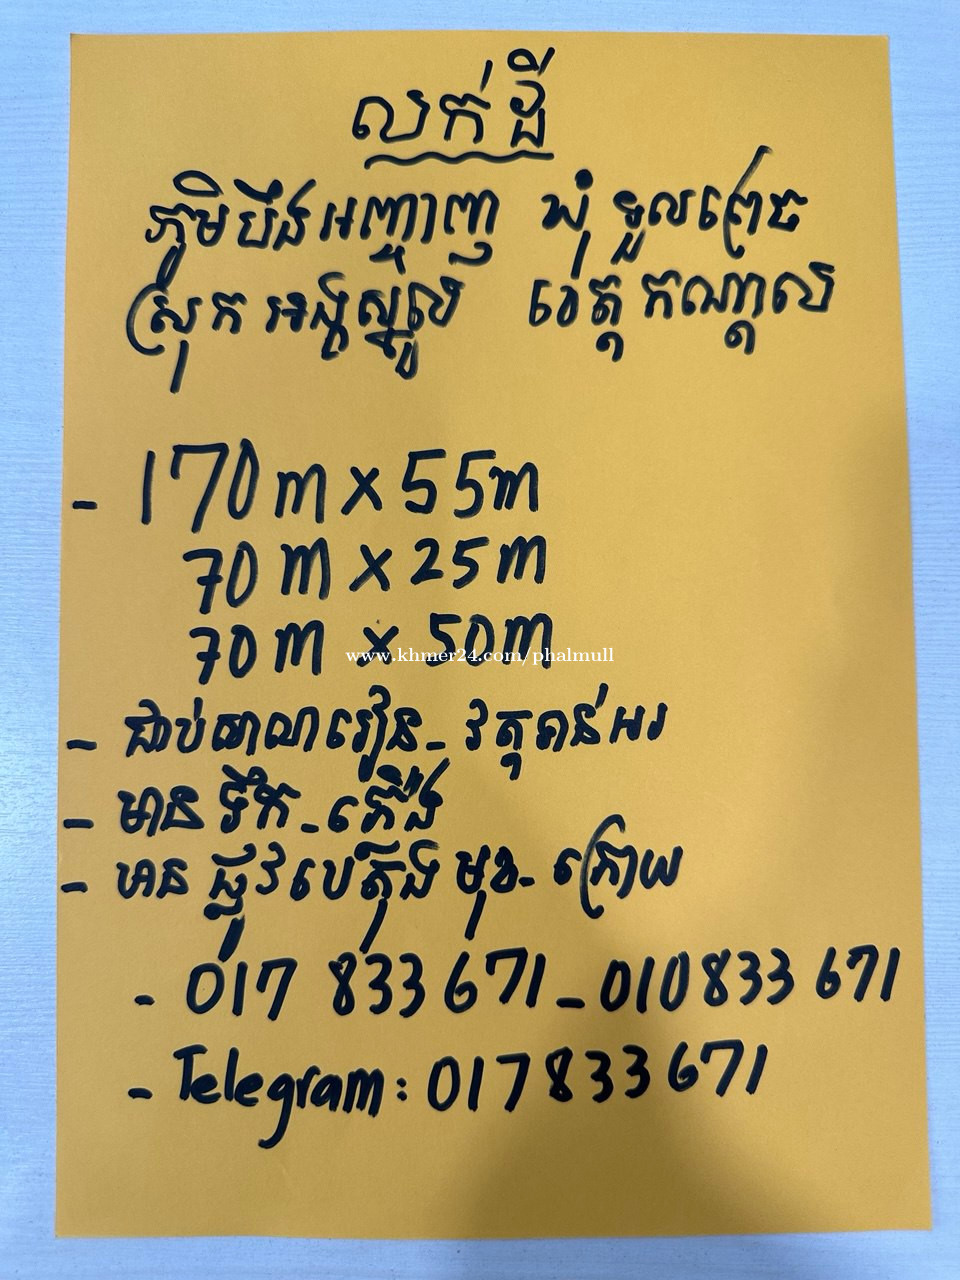 លក់ដី
ភូមិបឹងអញ្ចាញ ឃុំ ទួលព្រេច
ស្រុក អង្គស្នួល ខេត្ត កណ្តាល
- 170m x 55m
70m x 25m
70m x 50m
www.khmer24.com/phalmull
- ជាប់សាលារៀន - វត្តពាន់អរ
- មាន ទឹក - ភ្លើង
- មាន ផ្លូវ បេតុង មុខ - ក្រោយ
- 017 833 671 - 010 833 671
- Telegram: 017 833 671